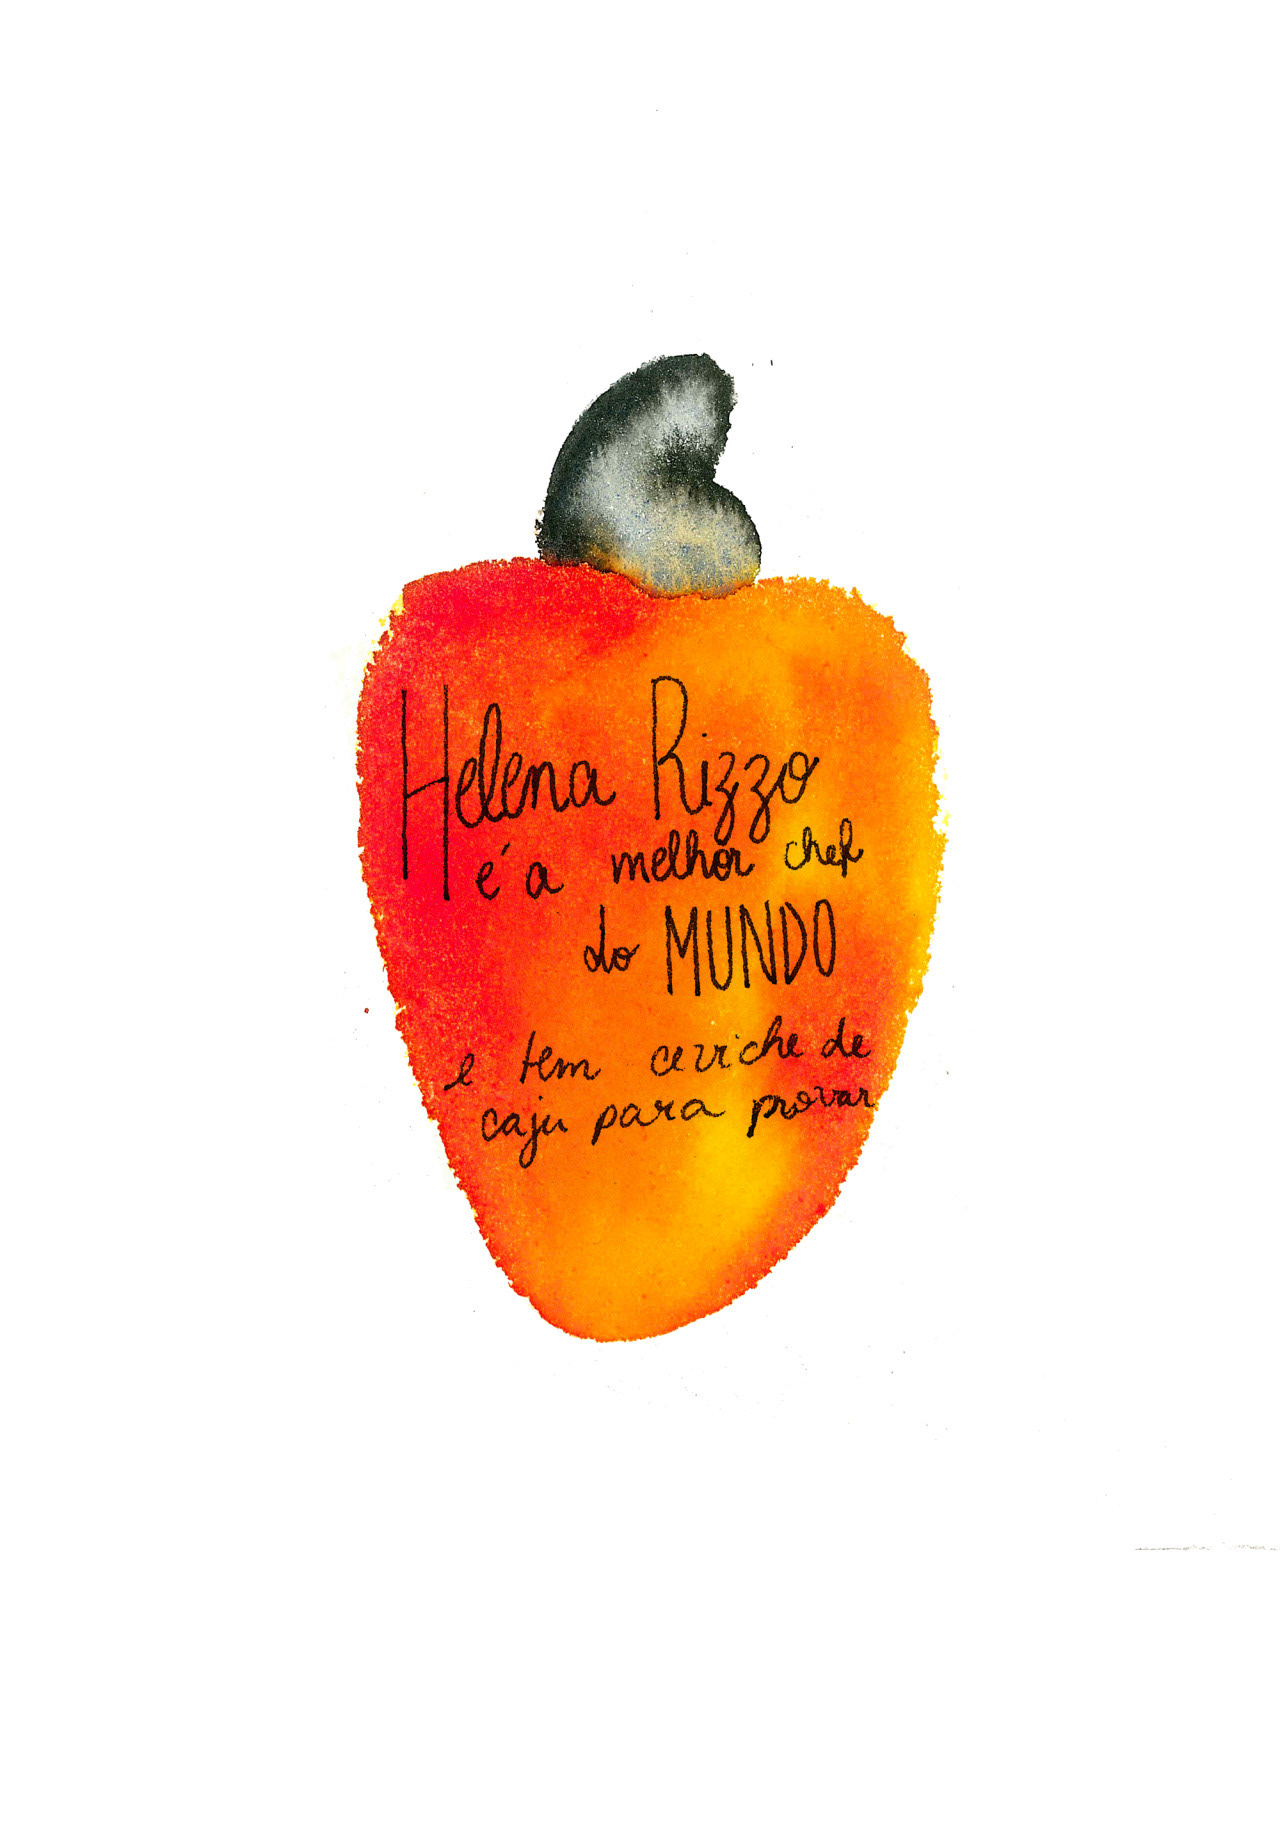 Helena Rizzo
é a melhor chef
do MUNDO
e tem ceviche de
caju para provar